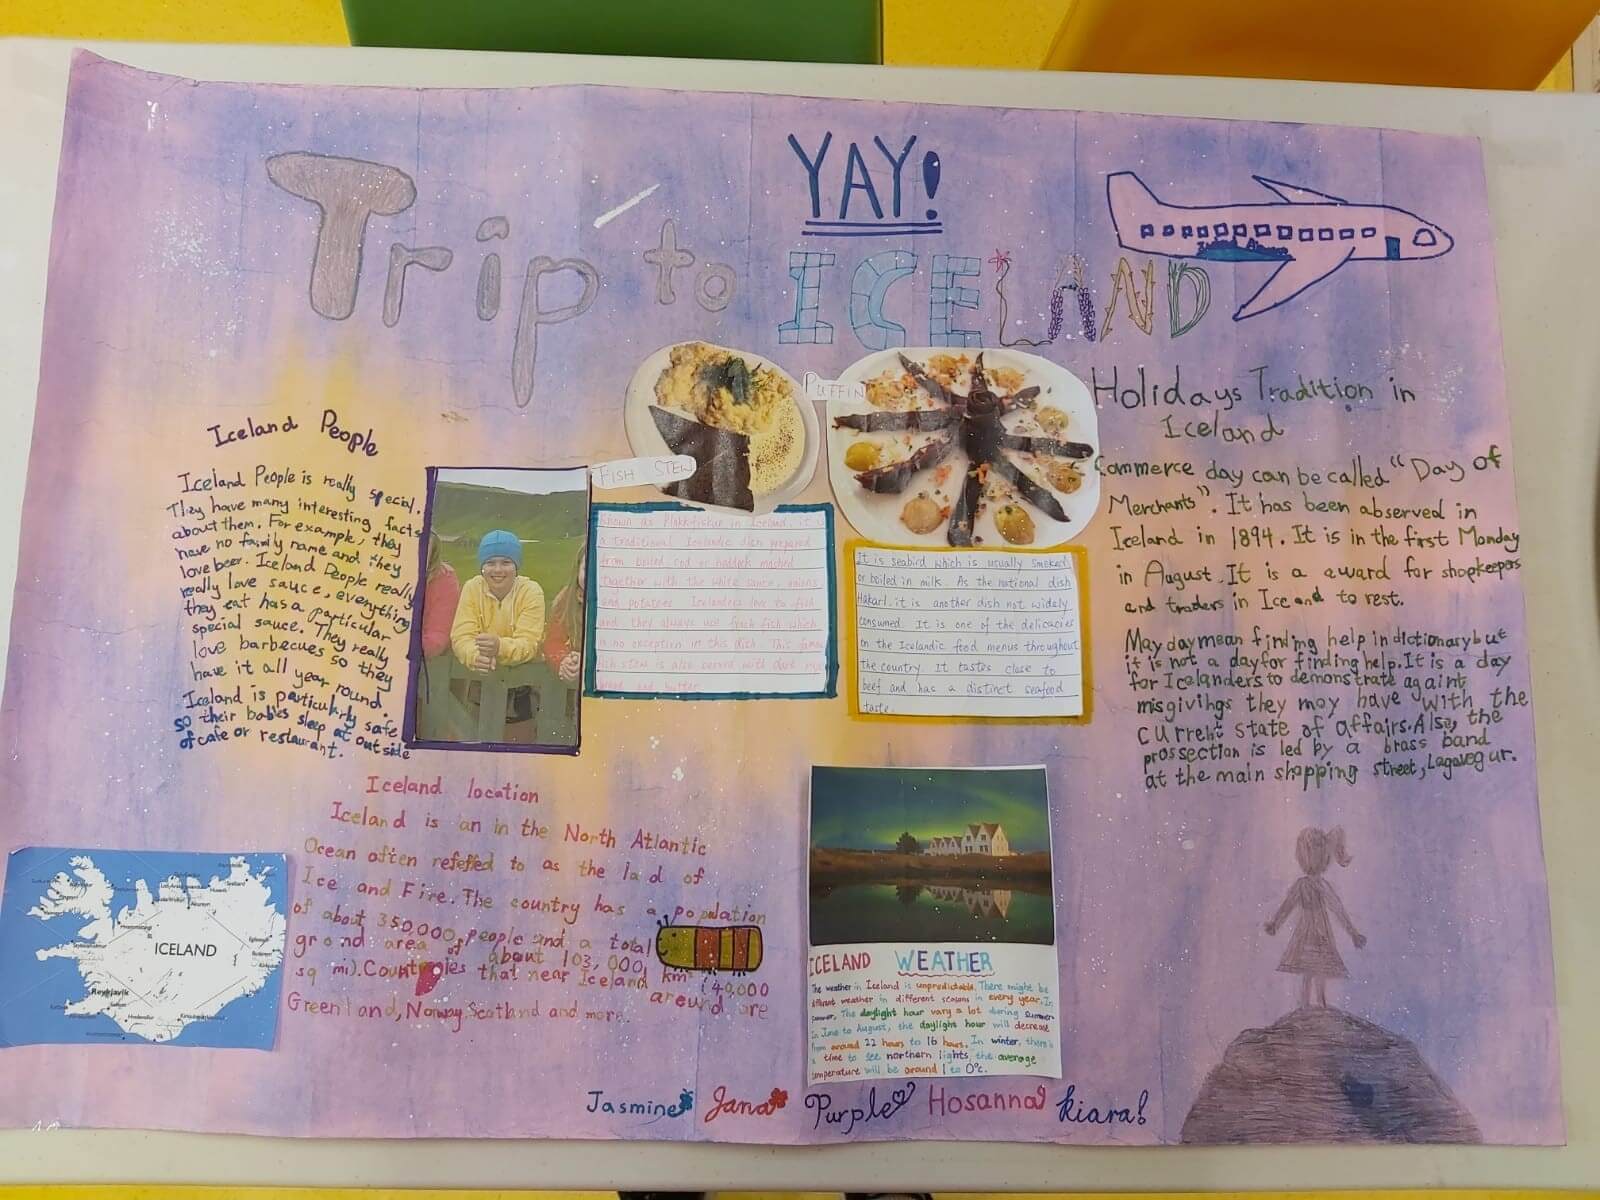 YAY!
Trip to ICELAND
Iceland People
Iceland People is really special.
They have many interesting facts
about them. For example, they
have no family name and they
love beer. Iceland People really
really love sauce, everything
they eat has a particular
special sauce. They really
love barbecues so they
have it all year round.
Iceland is particularly safe
so their babies sleep at outside
of cafe or restaurant.
FISH STEW
Known as Plokkfiskur in Iceland, it is
a traditional Icelandic dish prepared
from boiled cod or haddock mashed
together with the white sauce, onions
and potatoes. Icelanders love to fish
and they always use fresh fish which
is no exception in this dish. This famous
fish stew is also served with dark rye
bread and butter.
PUFFIN
It is seabird which is usually smoked
or boiled in milk. As the national dish
Hakarl, it is another dish not widely
consumed. It is one of the delicacies
on the Icelandic food menus throughout
the country. It tastes close to
beef and has a distinct seafood
taste.
Holidays Tradition in
Iceland
Commerce day can be called "Day of
Merchants". It has been observed in
Iceland in 1894. It is in the first Monday
in August. It is a award for shopkeepers
and traders in Iceand to rest.
May day mean finding help in dictionary but
it is not a day for finding help. It is a day
for Icelanders to demonstrate againt
misgivings they may have with the
current state of affairs. Also, the
prossection is led by a brass band
at the main shopping street, Lagavegur.
Iceland location
Iceland is an in the North Atlantic
Ocean often reffered to as the lad of
Ice and Fire. The country has a population
of about 350,000 people and a total
ground area of about 103,000 km² (40,000
sq mi). Countries that near Iceland areund are
Greenland, Norway, Scotland and more.
ICELAND
Reykjavik
ICELAND WEATHER
The weather in Iceland is unpredictable. There might be
different weather in different seasons in every year. In
summer, The daylight hour vary a lot during summer.
In June to August, the daylight hour will decrease
from around 22 hours to 16 hours. In winter, there is
a time to see northern lights, the average
temperature will be around 1 to 0°c.
Jasmine Jana Purple Hosanna Kiara!